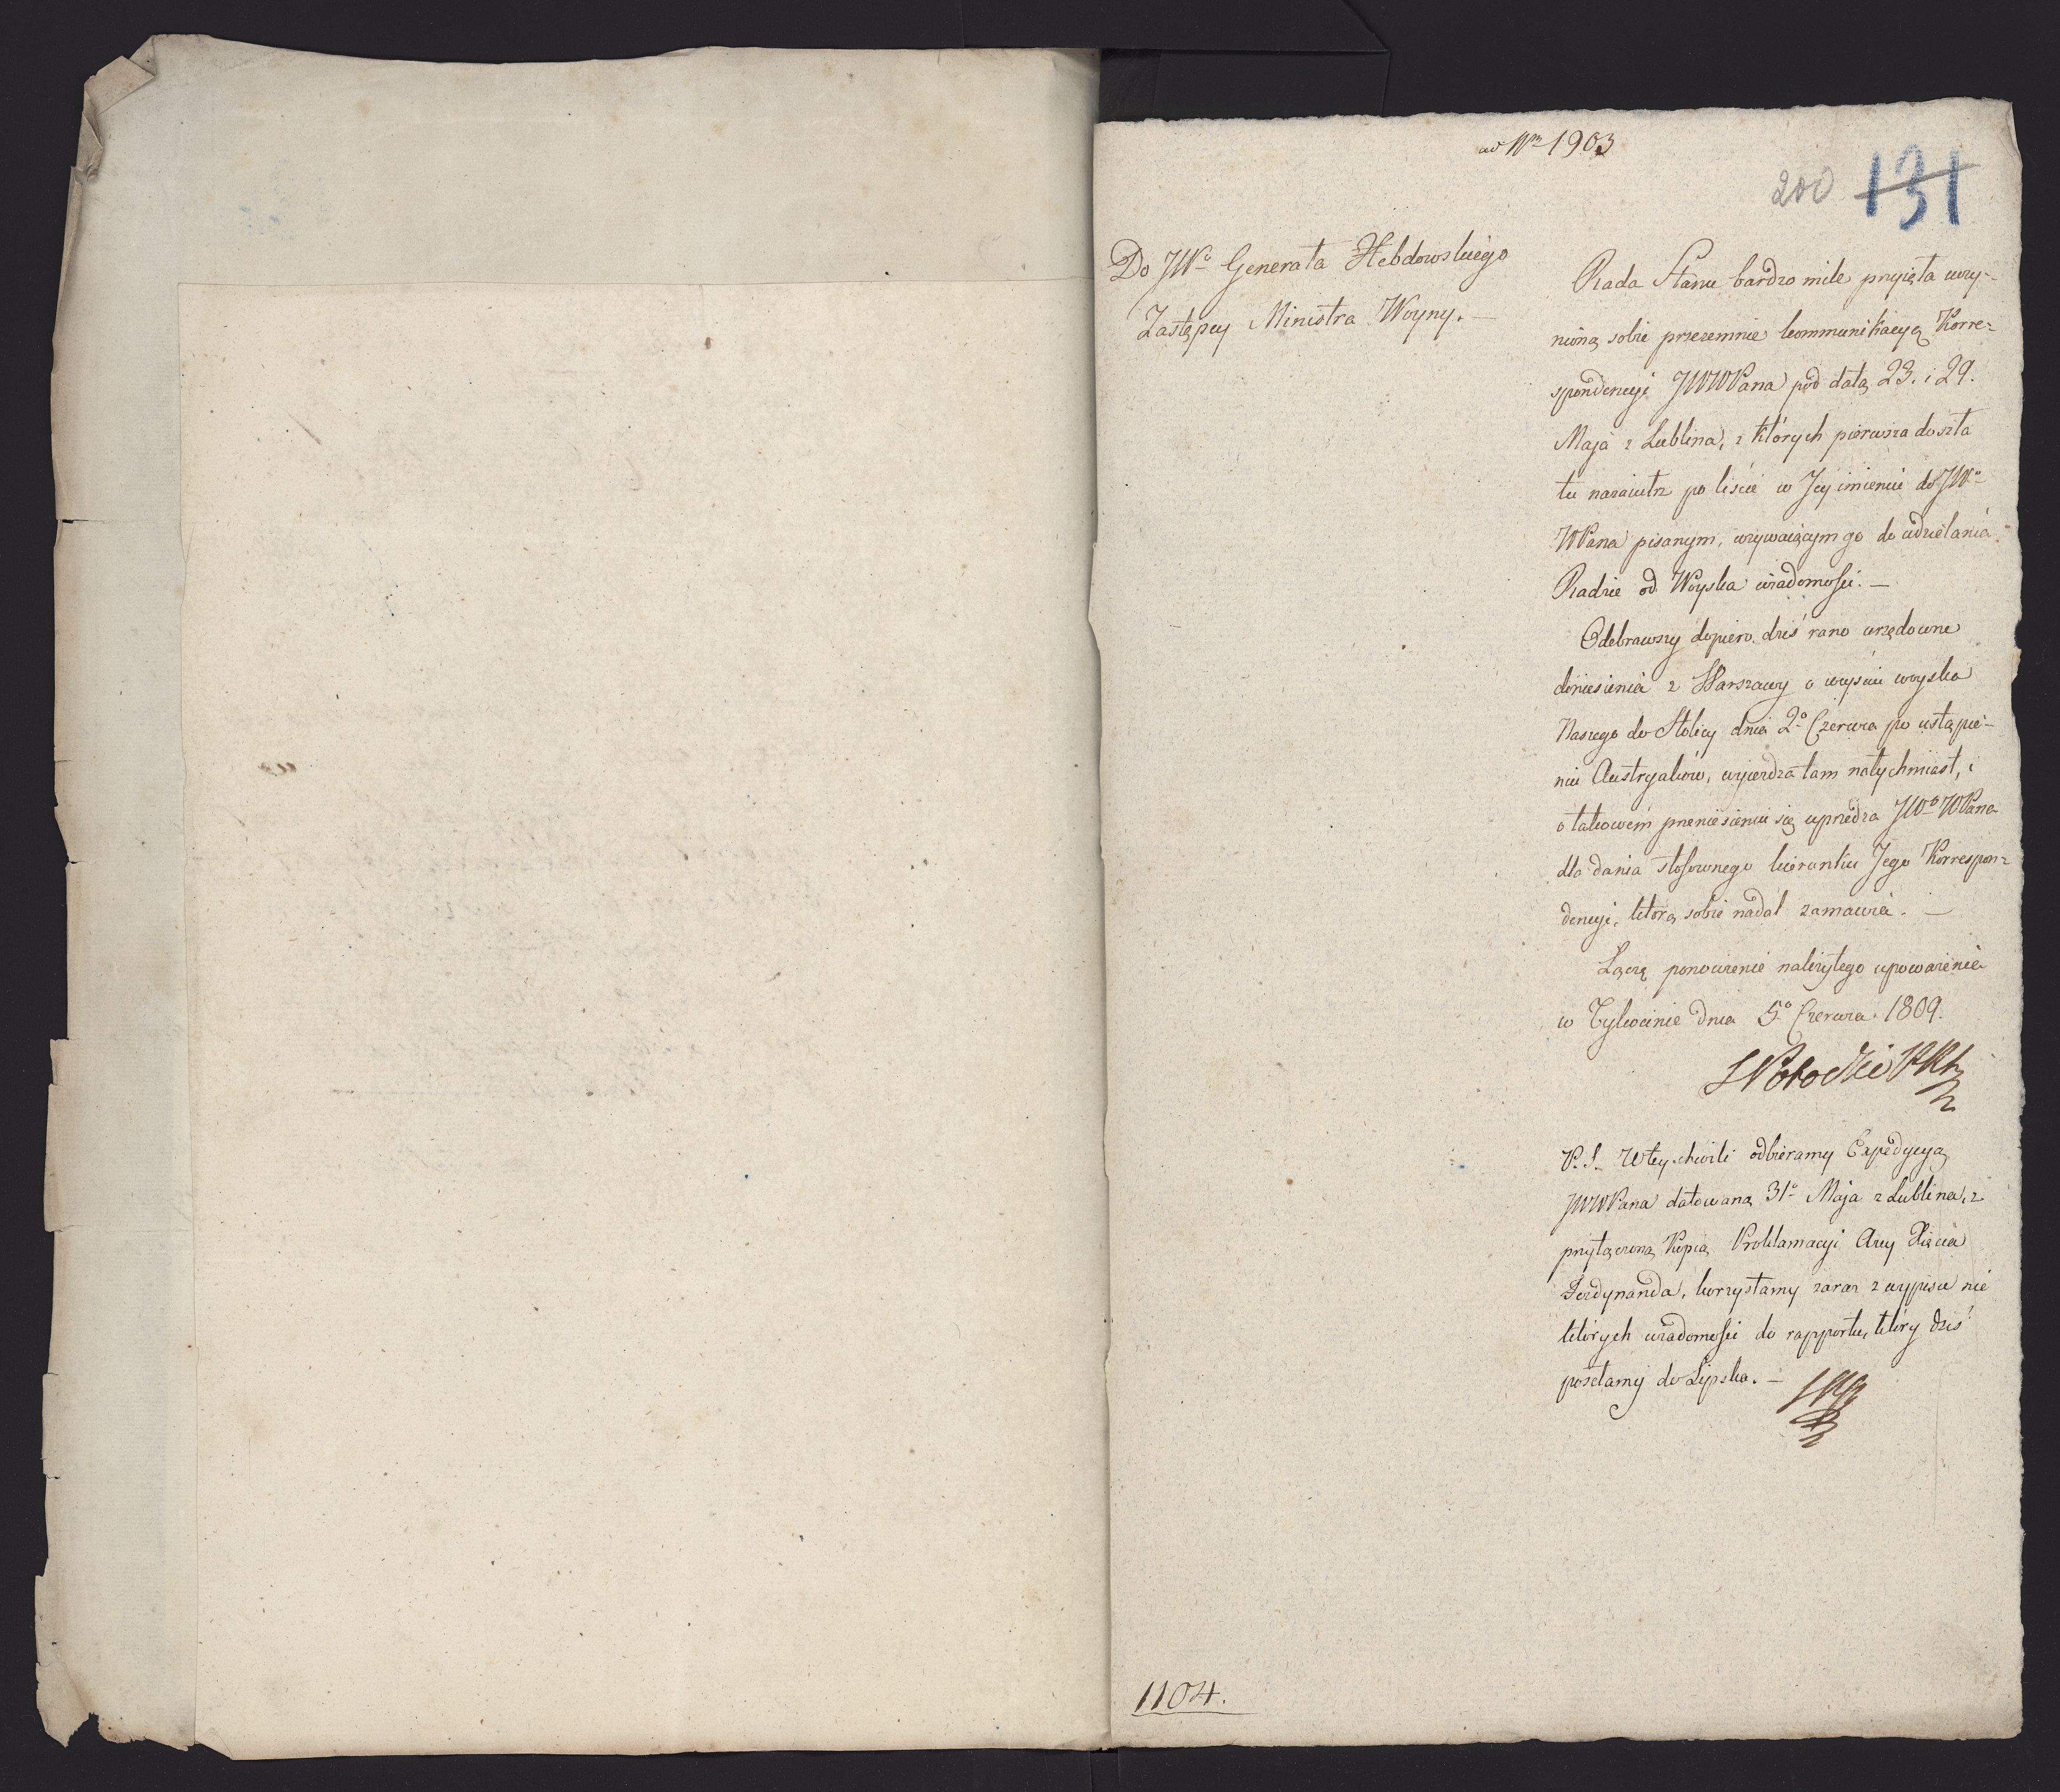 ad Nrm 1903
200 131
Do JWo Generała Hebdowskiego
Zastępcy Ministra Woyny. —
Rada Stanu bardzo mile przyięła uczy-
nioną sobie przezemnie kommunikacyą Korre-
spondencyi JWWPana pod datą 23. i 29.
Maja z Lublina, z których pierwsza doszła
tu nazaiutrz po liście w Jey imieniu do JWo
WPana pisanym, wzywaiącym go do udzielania
Radzie od Woyska wiadomości. —
Odebrawszy dopiero dziś rano urzędowne
doniesienia z Warszawy o weyściu woyska
Naszego do Stolicy dnia 2o Czerwca po ustąpie-
niu Austryaków, wyieżdża tam natychmiast, i
o takowém przeniesieniu się uprzedza JWo WPana
dla dania stosownego kierunku Jego Korrespon-
dencyi, którą sobie nadal zamawia. —
Łączę ponowienie należytego upoważenia
w Tykocinie dnia 5o Czerwca 1809.
S Potocki PR
P.S. W tey chwili odbieramy Expedycyą
JWWPana datowaną 31o Maja z Lublina, z
przyłączoną Kopią Proklamacyi Arcy Xięcia
Ferdynanda, korzystamy zaraz z wypisu nie
których wiadomości do rapportu, który dziś
posełamy do Lipska. —
1104.